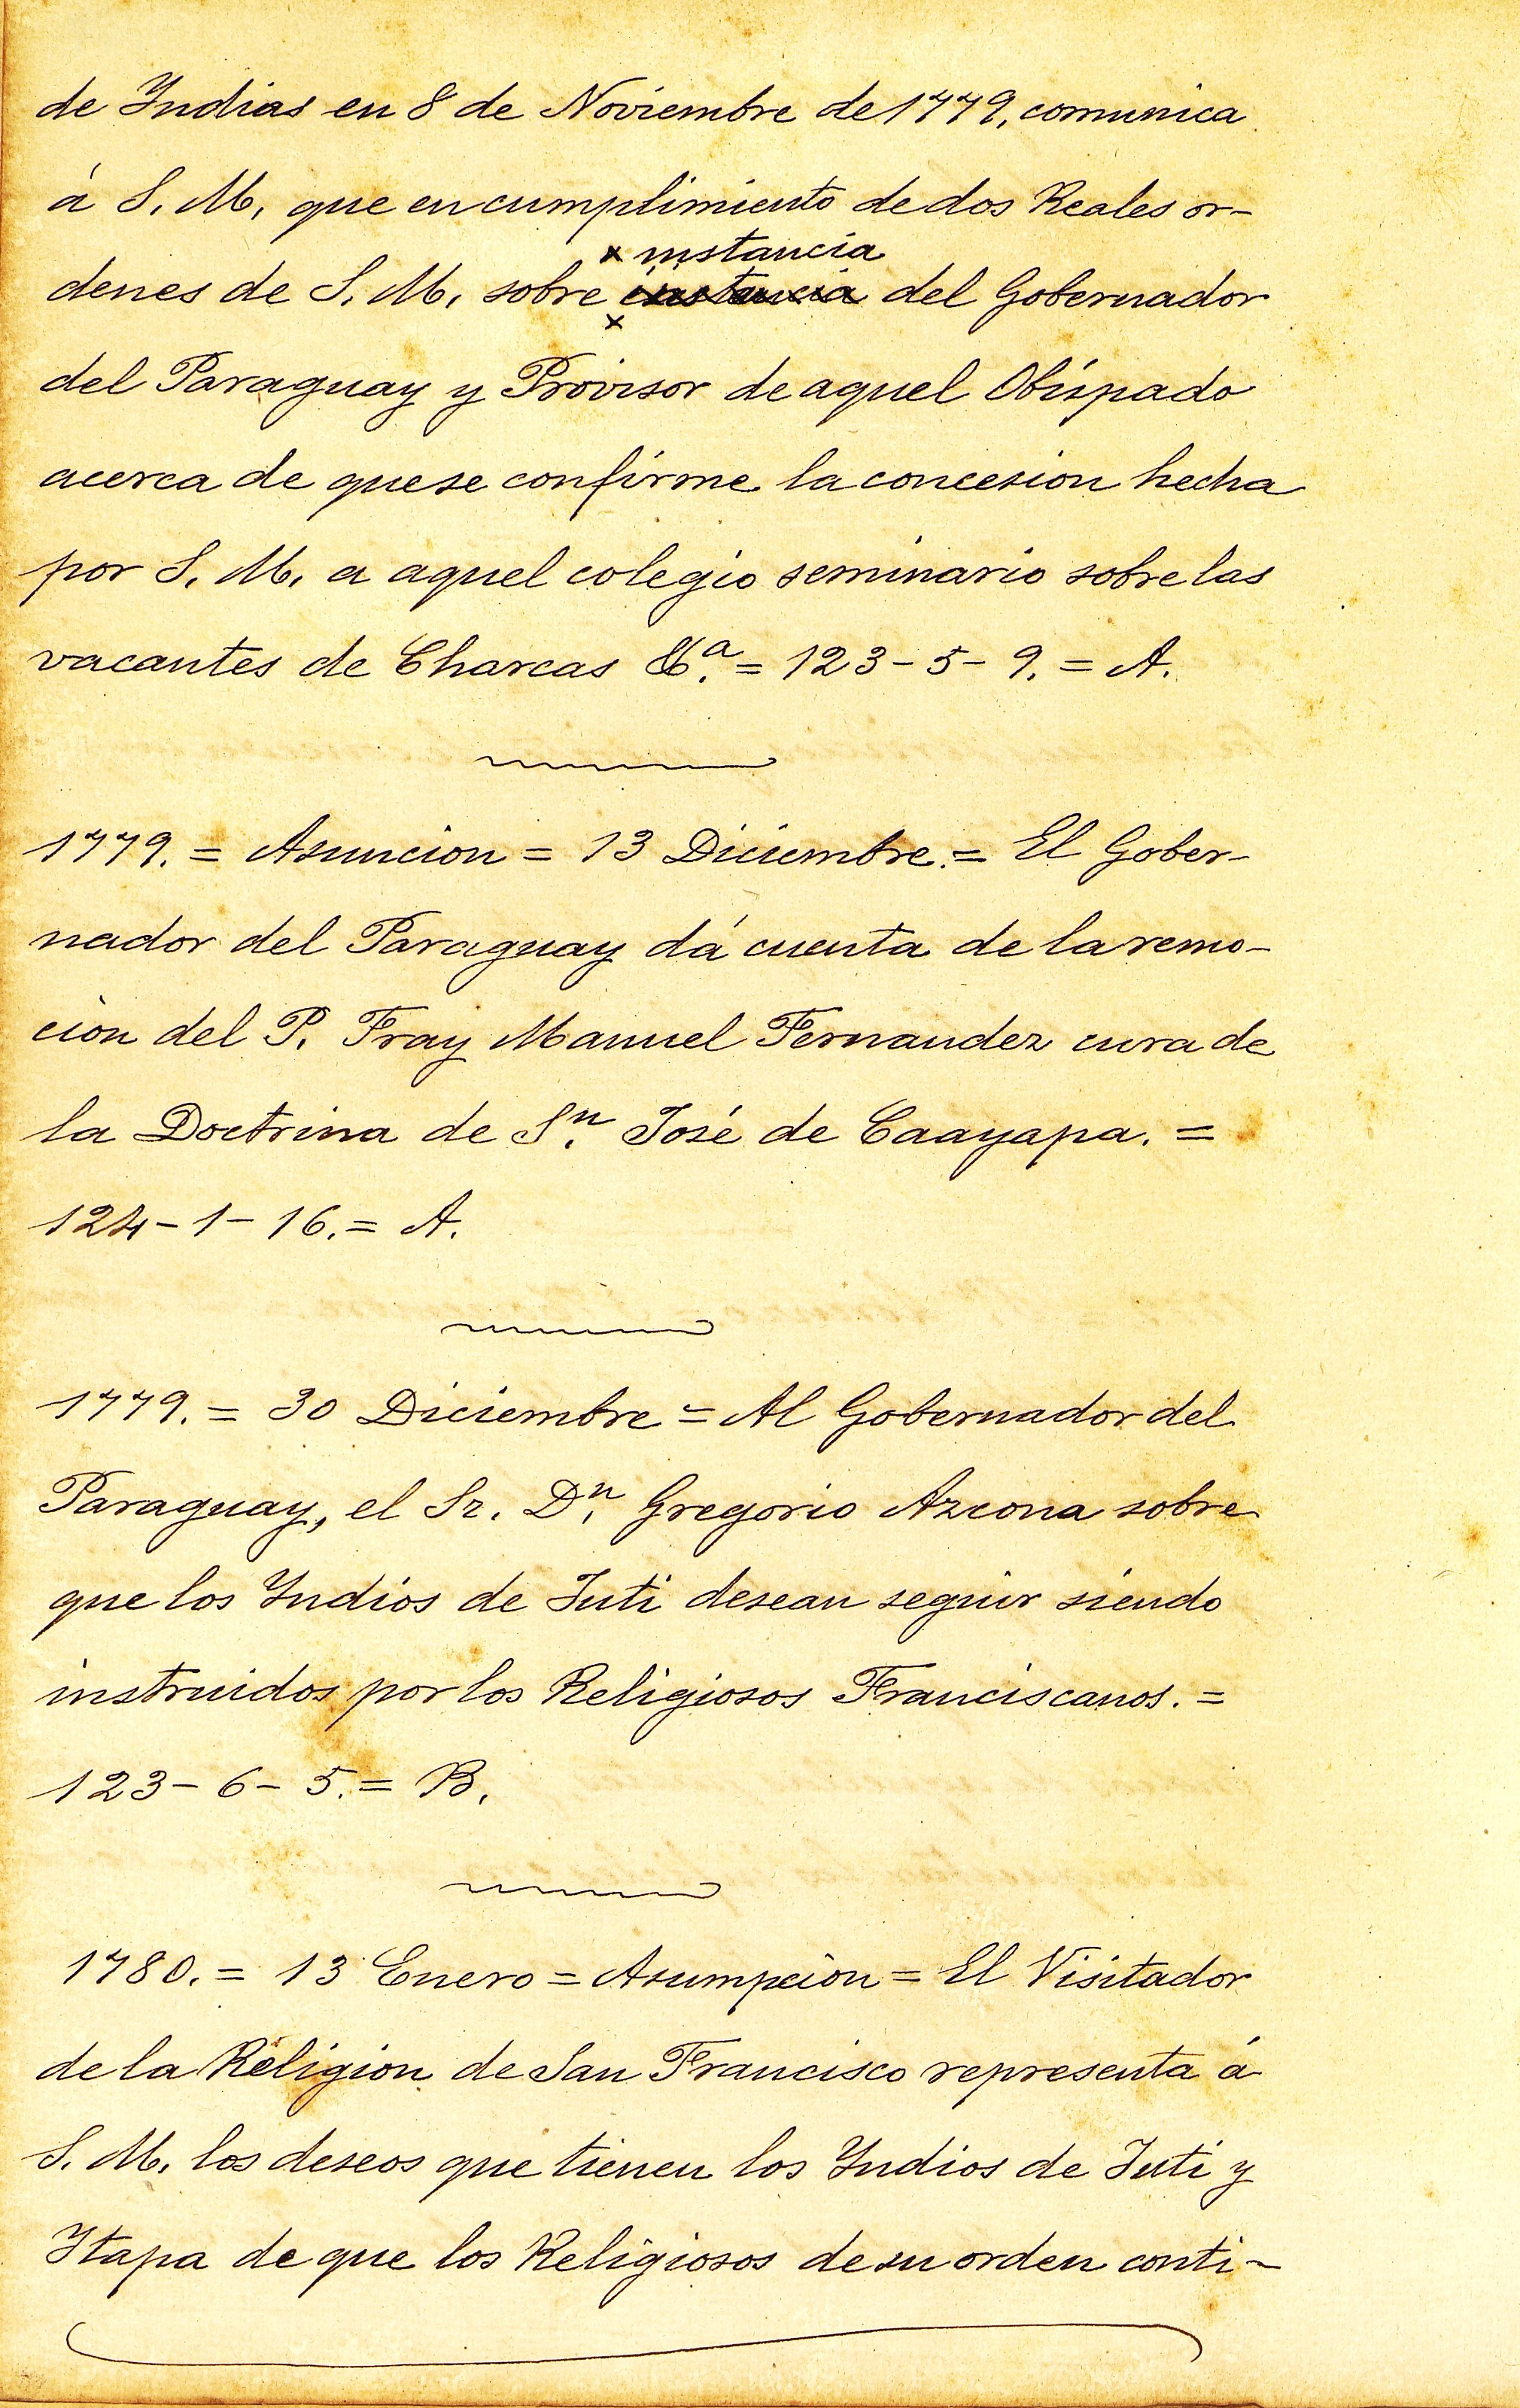 de Indias en 8 de Noviembre de 1779, comunica
á S. M. que en cumplimiento de dos Reales or-
× instancia
denes de S. M. sobre instancia del Gobernador
×
del Paraguay y Provisor de aquel Obispado
acerca de que se confirme la concesion hecha
por S. M. a aquel colegio seminario sobre las
vacantes de Charcas &.ª = 123-5-9. = A.
1779. = Asuncion = 13 Diciembre. = El Gober-
nador del Paraguay dá cuenta de la remo-
cion del P. Fray Manuel Fernandez cura de
la Doctrina de S.n José de Caayapa. =
124-1-16. = A.
1779. = 30 Diciembre = Al Gobernador del
Paraguay, el Sr. D.n Gregorio Azcona sobre
que los Indios de Juti desean seguir siendo
instruidos por los Religiosos Franciscanos. =
123-6-5. = B.
1780. = 13 Enero = Asumpcion = El Visitador
de la Religion de San Francisco representa á
S. M. los deseos que tienen los Indios de Juti y
Itapa de que los Religiosos de su orden conti-